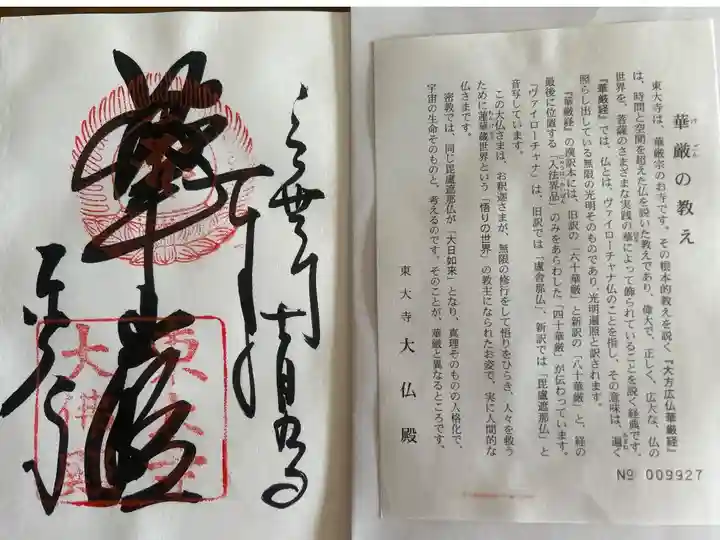 華厳
東大寺
東大寺
大佛殿
華厳の教え
東大寺は、華厳宗のお寺です。その根本的教えを説く『大方広仏華厳経』
は、時間と空間を超えた仏を説いた教えであり、偉大で、正しく、広大な、仏の
世界を、菩薩のさまざまな実践の華によって飾られていることを説く経典です。
『華厳経』では、仏とは、ヴァイローチャナ仏のことを指し、その意味は、遍く
照らし出している無限の光明そのものであり、光明遍照と訳されます。
『華厳経』の漢訳本には、旧訳の「六十華厳」と新訳の「八十華厳」と、経の
最後に位置する「入法界品」のみをあらわした「四十華厳」が伝わっています。
「ヴァイローチャナ」は、旧訳では「盧舎那仏」、新訳では「毘盧遮那仏」と
音写しています。
この大仏さまは、お釈迦さまが、無限の修行をして悟りをひらき、人々を救う
ために蓮華蔵世界という「悟りの世界」の教主になられたお姿で、実に人間的な
仏さまです。
密教では、同じ毘盧遮那仏が「大日如来」となり、真理そのものの人格化で、
宇宙の生命そのものと、考えるのです。そのことが、華厳と異なるところです。
東大寺 大仏殿
№ 009927